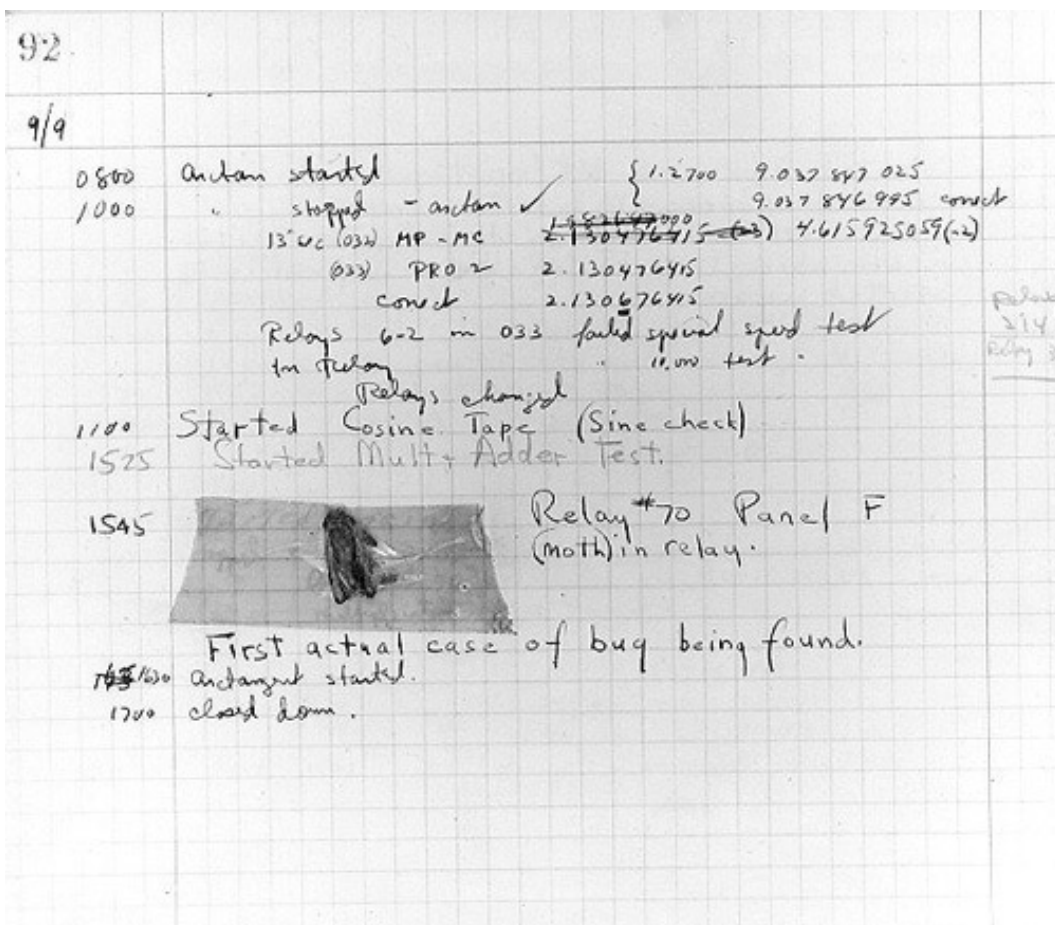 92
9/9
0800 Antan started { 1.2700 9.037 847 025
1000 " stopped - antan ✓ 9.037 846 995 correct
13"uc (032) MP - MC 2.130476415 (-3) 4.615925059(-2)
(033) PRO 2 2.130476415
correct 2.130676415
Relays 6-2 in 033 failed special speed test
in relay " 10.000 test .
Relays changed
1100 Started Cosine Tape (Sine check)
1525 Started Mult + Adder Test.
1545 Relay #70 Panel F
(moth) in relay.
First actual case of bug being found.
1630 Antangent started.
1700 closed down.
Relay
214
Relay 3